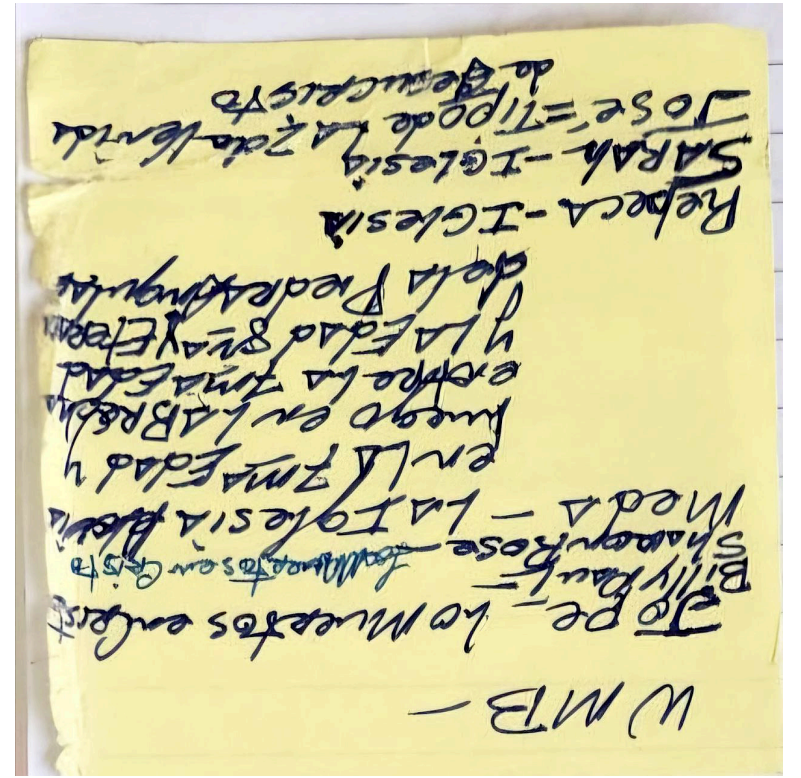 WMB -
Jope - Lo Muertos en Crist
Billy Paul -
Sharon Rose - Los Muertos en Cristo
Meda - La Iglesia Novia
en La 7ma Edad y
Luego en La Brecha
entre La 7ma Edad
y La Edad 8va y Eterna
de la Piedra Angular
Rebeca - Iglesia
SARAh - Iglesia
José = Tipo de La 2da Venida
de Jesucristo